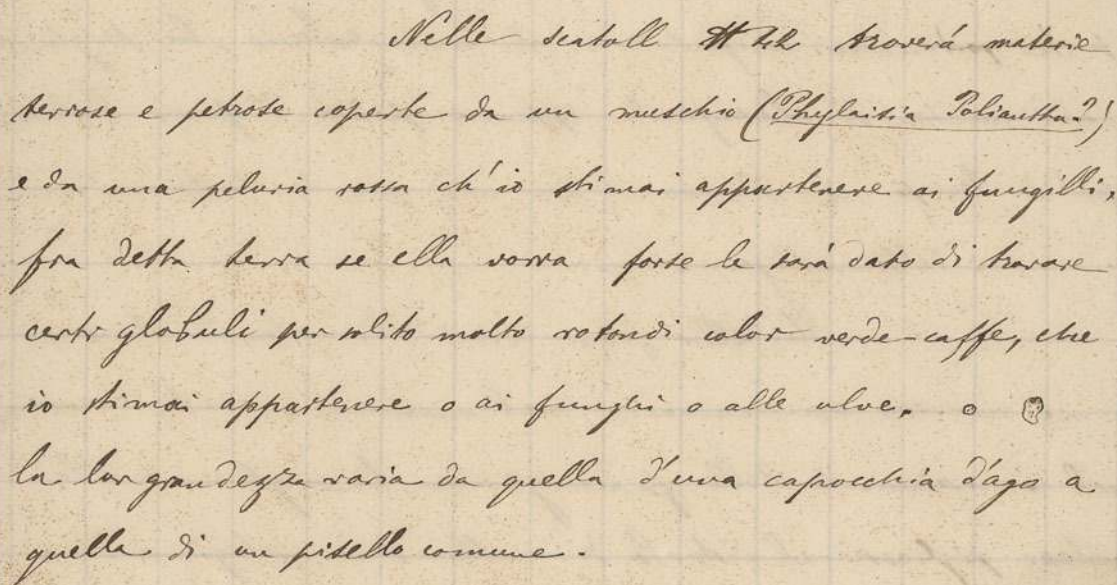 Nelle scatoll # 42 troverá materie
terrose e petrose coperte da un muschio (Phylaisia Poliantha?)
e da una peluria rossa ch'io stimai appartenere ai fungilli,
fra detta terra se ella vorra forse le sará dato di trovare
certi globuli per solito molto rotondi color verde-caffe, che
io stimai appartenere o ai funghi o alle ulve. o
la lor grandezza varia da quella d'una capocchia d'ago a
quella di un pisello comune.